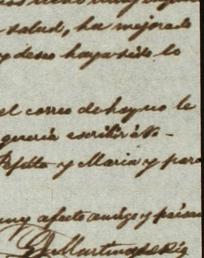 salud, ha mejorado
y deseo haya sido lo
el correo de hoy no le
queria escribir á V.
Pepita y Maria y para
muy afecto amigo y paisano